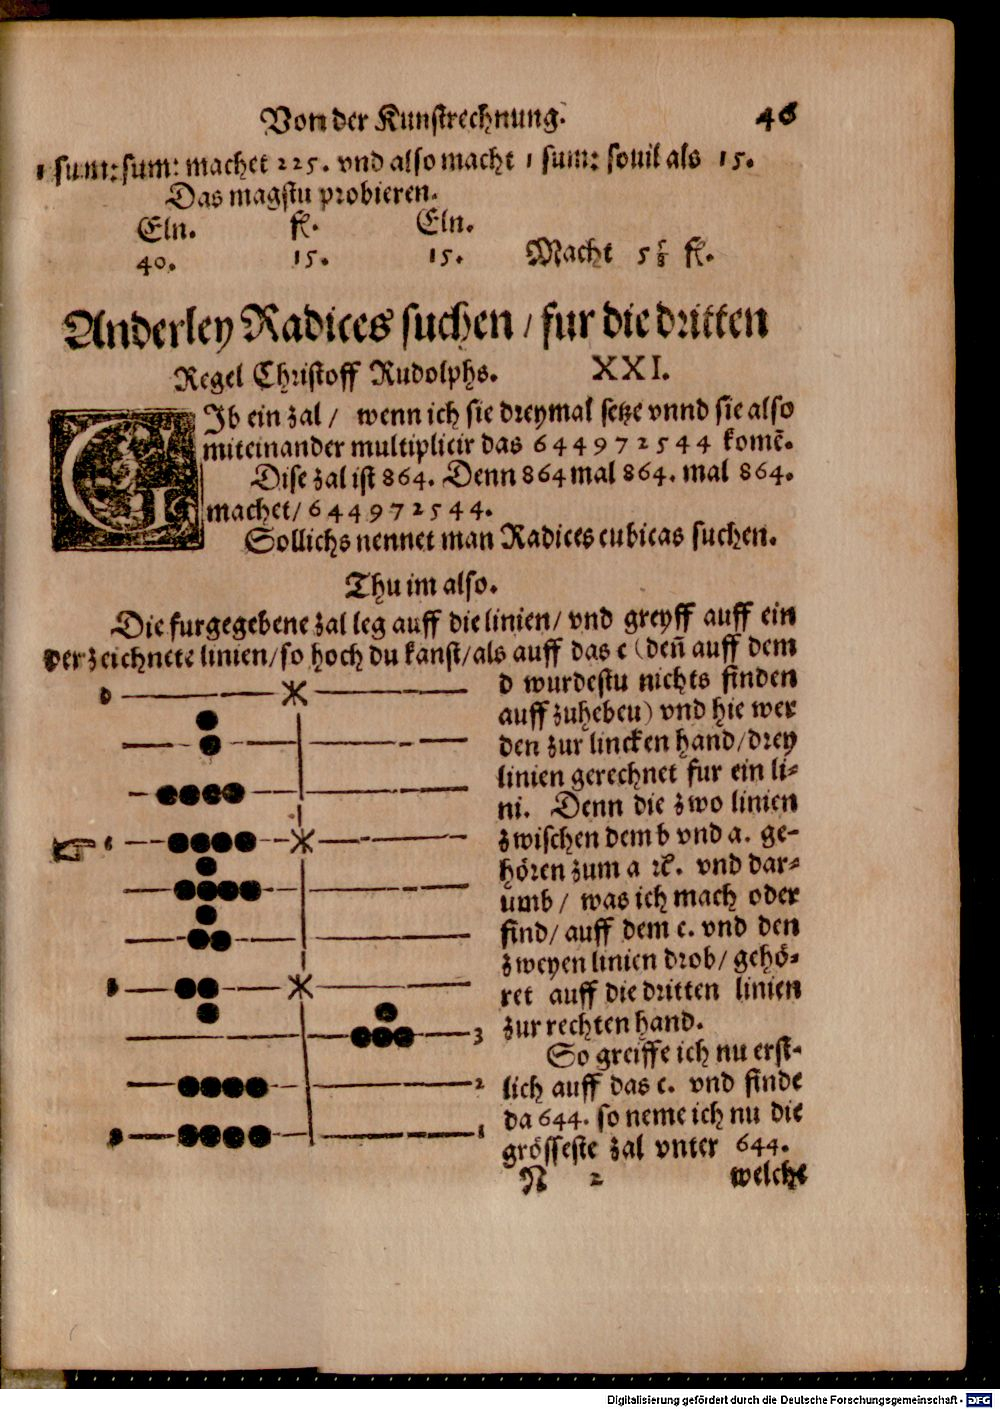 Von der Kunstrechnung. 46
1 sum: sum: machet 225. vnd also macht 1 sum: souil als 15.
Das magstu probieren.
Eln. fl. Eln.
40. 15. 15. Macht 5 5/8 fl.
Anderley Radices suchen / fur die dritten
Regel Christoff Rudolphs. XXI.
GIb ein zal / wenn ich sie dreymal setze vnnd sie also
miteinander multiplicir das 644972544 komē.
Dise zal ist 864. Denn 864 mal 864. mal 864.
machet / 644972544.
Sollichs nennet man Radices cubicas suchen.
Thu im also.
Die furgegebene zal leg auff die linien / vnd greyff auff ein
verzeichnete linien / so hoch du kanst / als auff das c (deñ auff dem
d wurdestu nichts finden
auff zuhebeu) vnd hie wer
den zur lincken hand / drey
linien gerechnet fur ein li-
ni. Denn die zwo linien
zwischen dem b vnd a. ge-
hören zum a rc. vnd dar-
umb / was ich mach oder
find / auff dem c. vnd den
zweyen linien drob / gehö-
ret auff die dritten linien
zur rechten hand.
So greiffe ich nu erst-
lich auff das c. vnd finde
da 644. so neme ich nu die
grösseste zal vnter 644.
N 2 welche
D
c
b
3
2
a 1
Digitalisierung gefördert durch die Deutsche Forschungsgemeinschaft - DFG